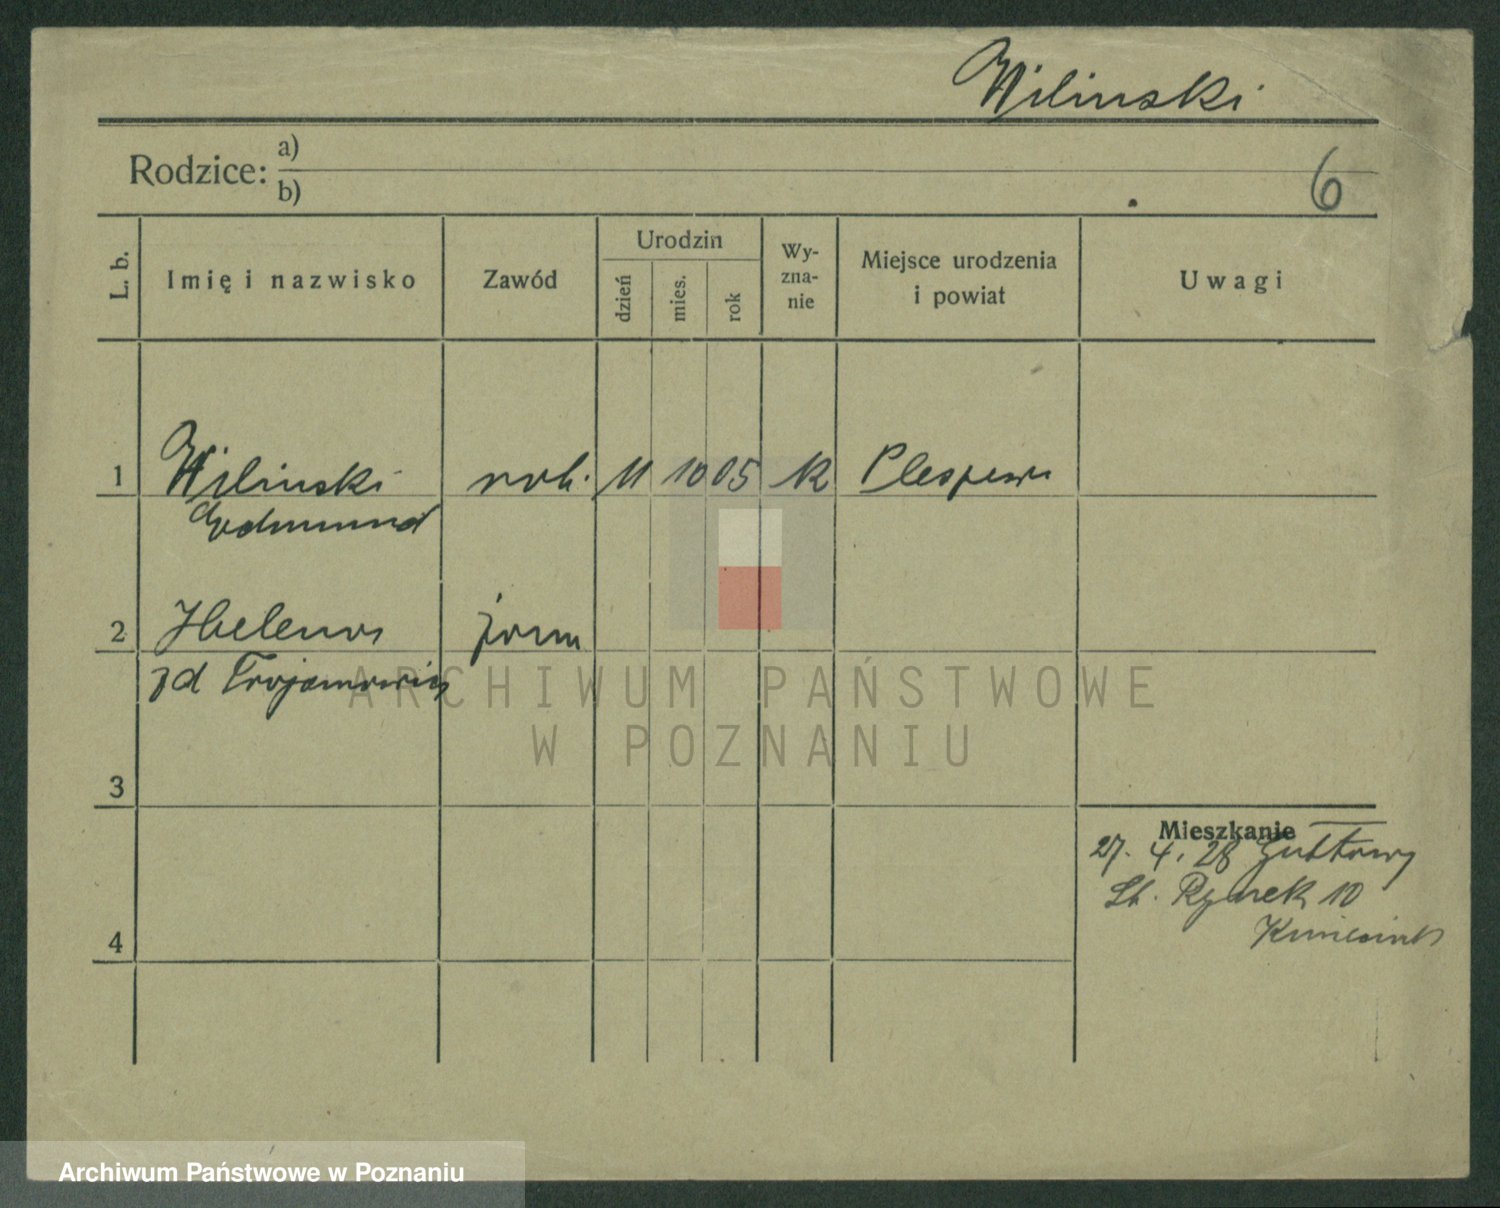 Wilinski
Rodzice: a)
b)
6
L. b.
Imię i nazwisko
Zawód
Urodzin
dzień
mies.
rok
Wy-
zna-
nie
Miejsce urodzenia
i powiat
Uwagi
1 Wilinski rob. 11 10 05 k
Edmund
2 Helena żona
zd Trojanowicz
3
4
Mieszkanie
27. 4. 28
St. Rynek 10
ARCHIWUM PAŃSTWOWE
W POZNANIU
Archiwum Państwowe w Poznaniu